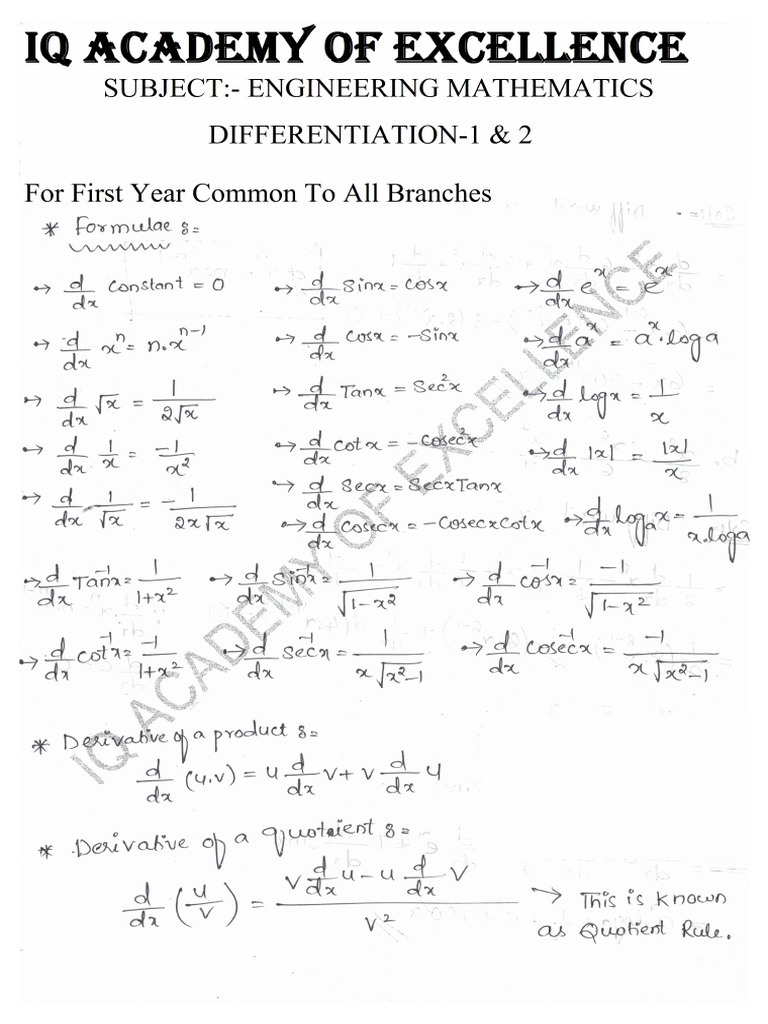 IQ ACADEMY OF EXCELLENCE
SUBJECT:- ENGINEERING MATHEMATICS
DIFFERENTIATION-1 & 2
For First Year Common To All Branches
* Formulae :=
→ d/dx constant = 0 → d/dx Sinx = cosx → d/dx e^x = e^x
→ d/dx x^n = n.x^(n-1) → d/dx Cosx = -Sinx → d/dx a^x = a^x.loga
→ d/dx √x = 1/(2√x) → d/dx Tanx = Sec²x → d/dx logx = 1/x
→ d/dx 1/x = -1/x² → d/dx Cotx = -Cosec²x → d/dx |x| = |x|/x
→ d/dx 1/√x = -1/(2x√x) → d/dx Secx = SecxTanx
→ d/dx Cosecx = -CosecxCotx → d/dx logₐx = 1/(x.loga)
→ d/dx Tan⁻¹x = 1/(1+x²) → d/dx Sin⁻¹x = 1/√(1-x²) → d/dx cos⁻¹x = -1/√(1-x²)
→ d/dx cot⁻¹x = -1/(1+x²) → d/dx Sec⁻¹x = 1/(x√(x²-1)) → d/dx Cosec⁻¹x = -1/(x√(x²-1))
* Derivative of a product :=
d/dx (u.v) = u d/dx v + v d/dx u
* Derivative of a quotaient :=
d/dx (u/v) = (v d/dx u - u d/dx v)/v² → This is known
as Quotient Rule.
IQ ACADEMY OF EXCELLENCE